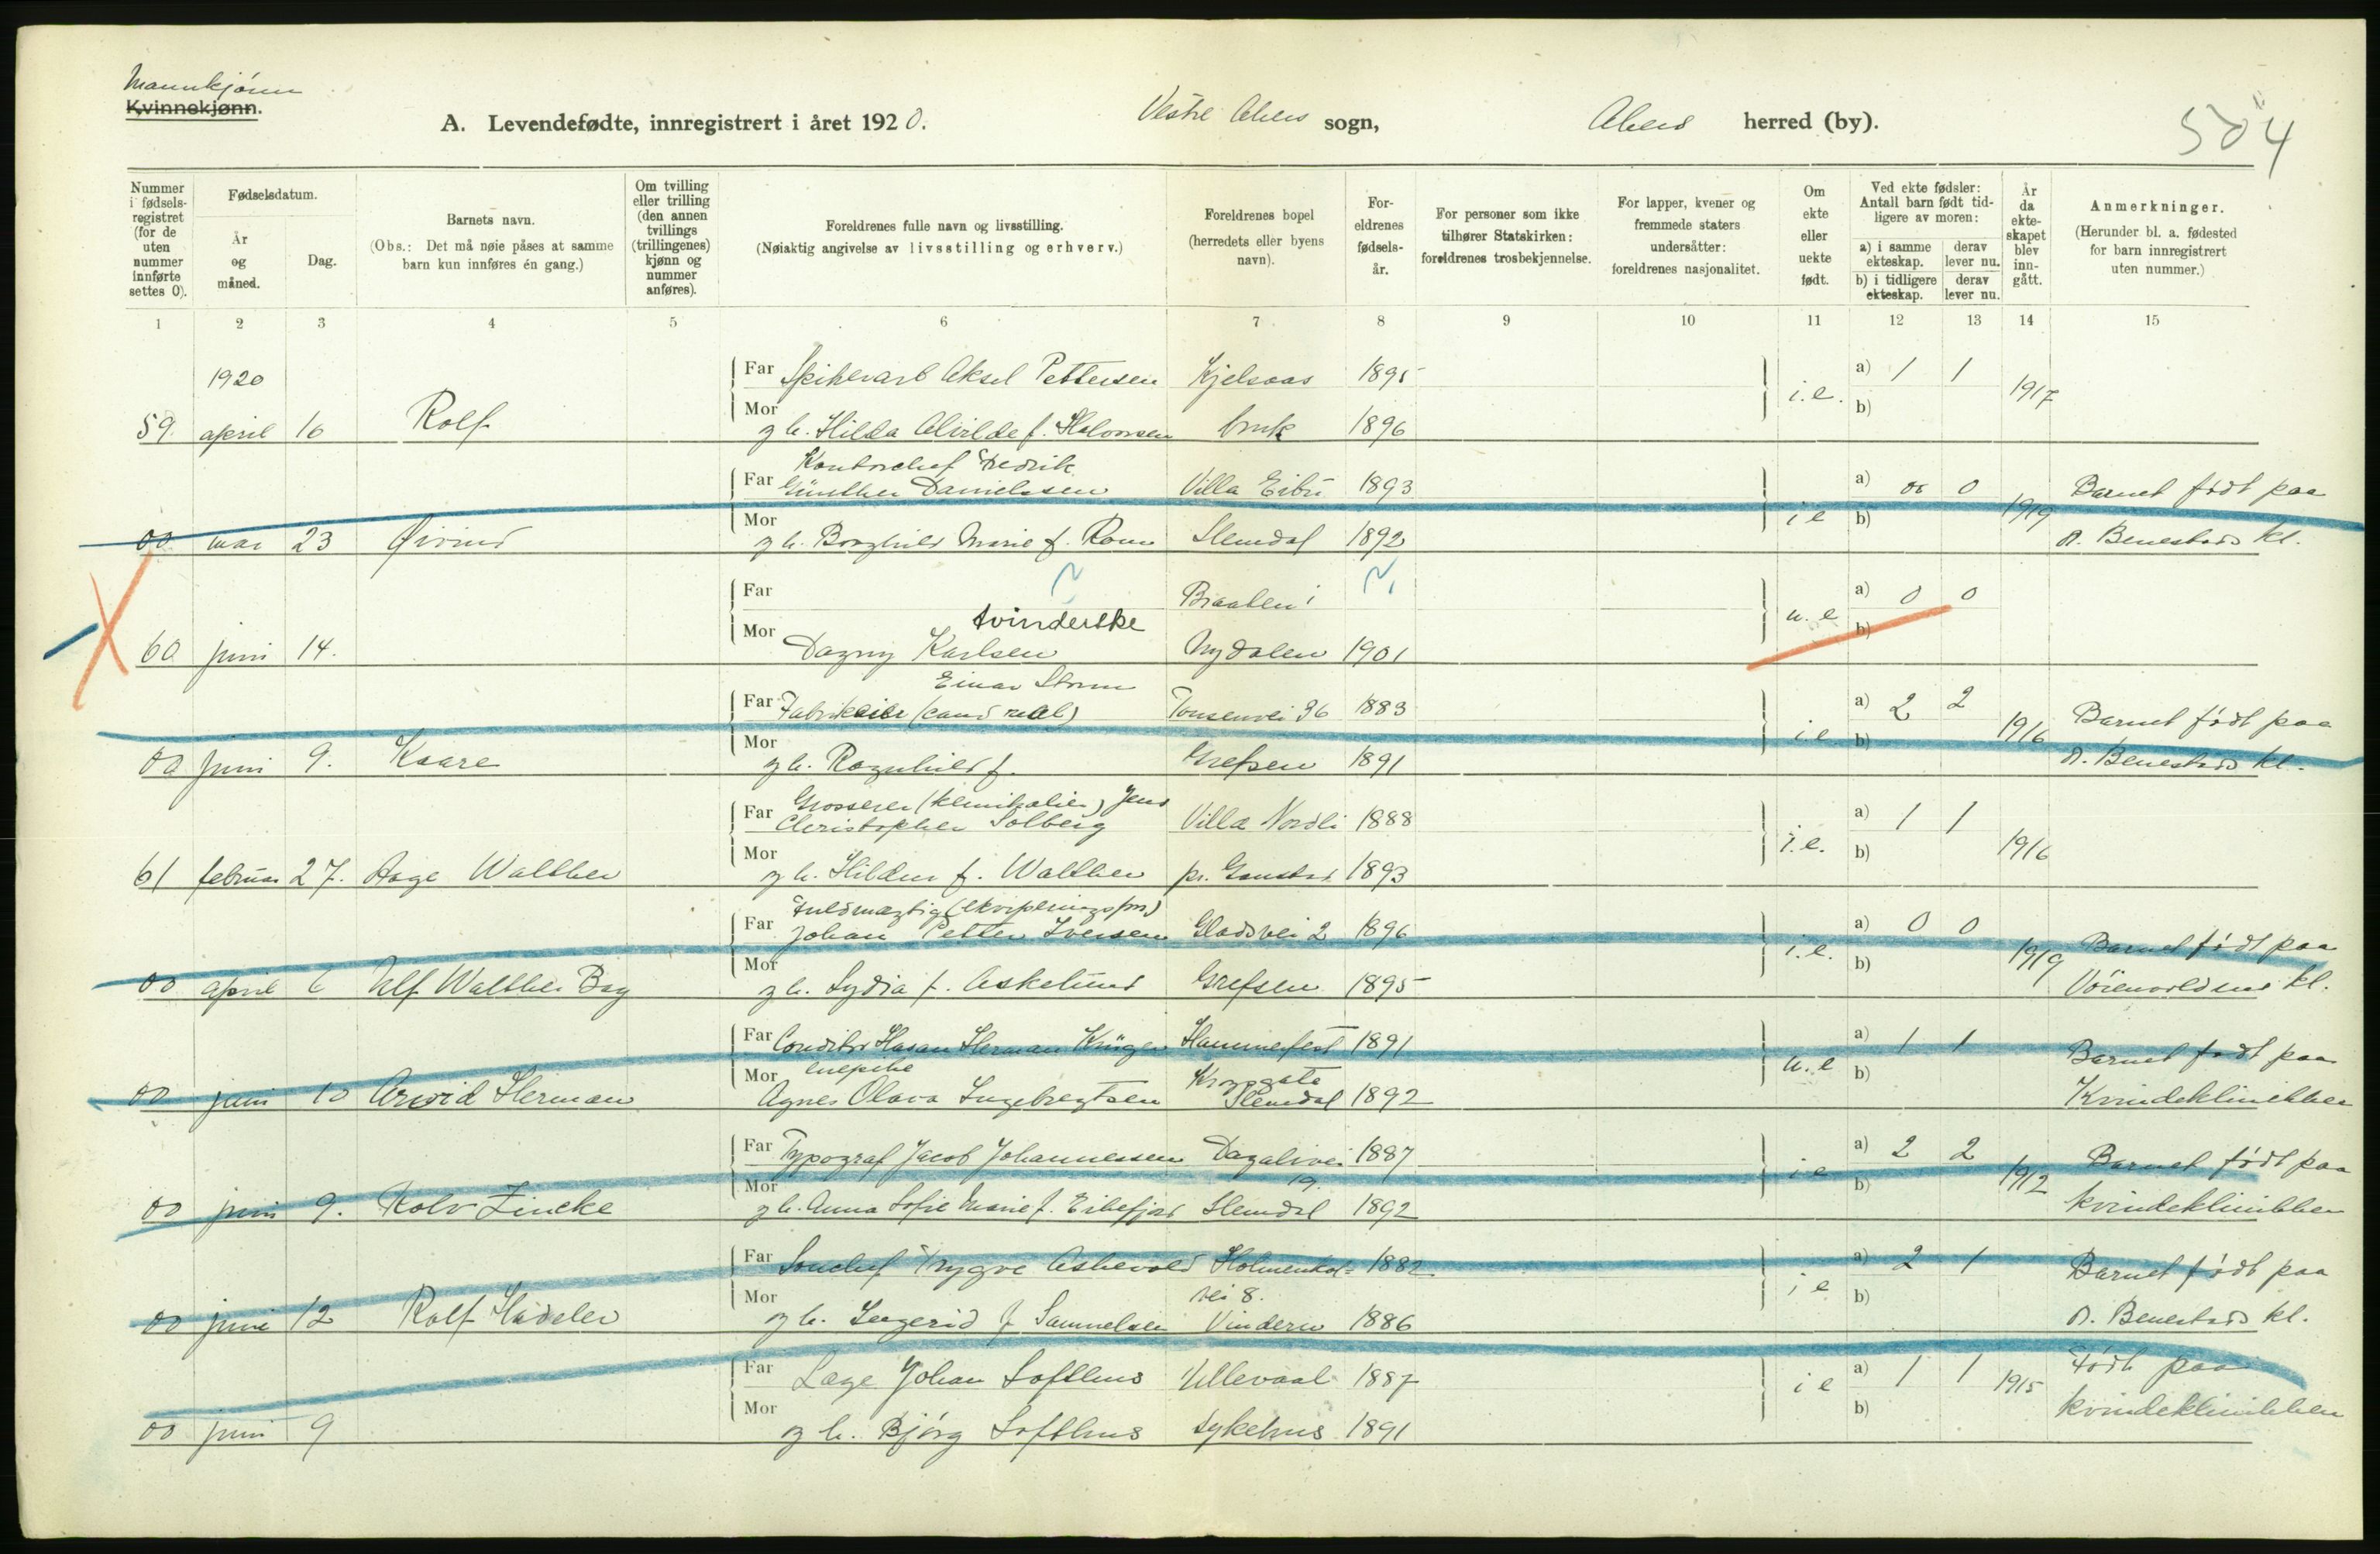 Mannkjønn
Kvinnekjønn.
A. Levendefødte, innregistrert i året 1920.
Vestre Akers sogn,
Akers herred (by).
504
Nummer i fødsels-registret (for de uten nummer innførte settes 0).
Fødselsdatum.
År og måned.
Dag.
Barnets navn.
(Obs.: Det må nøie påses at samme barn kun innføres én gang.)
Om tvilling eller trilling (den annen tvillings (trillingenes) kjønn og nummer anføres).
Foreldrenes fulle navn og livsstilling.
(Nøiaktig angivelse av livsstilling og erhverv.)
Foreldrenes bopel (herredets eller byens navn).
For-eldrenes fødsels-år.
For personer som ikke tilhører Statskirken: foreldrenes trosbekjennelse.
For lapper, kvener og fremmede staters undersåtter: foreldrenes nasjonalitet.
Om ekte eller uekte født.
Ved ekte fødsler: Antall barn født tid-ligere av moren:
a) i samme ekteskap.
derav lever nu.
b) i tidligere ekteskap.
derav lever nu.
År da ekte-skapet blev inn-gått.
Anmerkninger.
(Herunder bl. a. fødested for barn innregistrert uten nummer.)
1 2 3 4 5 6 7 8 9 10 11 12 13 14 15
1920
Far Aksel Pettersen Kjelsaas 1895 a) 1 1
59. april 16 Rolf Mor g h. Hilda Alvilde f. Halvorsen bruk 1896 i.e. b) 1917
Kontorchef Fredrik
Far Günther Danielssen Villa Eibu 1893 a) 0 Barnet født paa
00 mai 23 Øivind Mor g h. Borghild Marie f. Slemdal 1892 i e b) 1919 D. Benestads kl.
Far Braaten i a) 0 0
tvinderske
60 juni 14. Mor Dagny Karlsen Nydalen 1901 u. e b)
Einar Storm
Far Fabrikeier (cand real) Tonsenvei 36 1883 a) 2 2 Barnet født paa
00 juni 9. Kaare Mor g h. Ragnhild f. Grefsen 1891 i e b) 1916 D. Benestads kl.
Grosserer (kemikalier) Jens
Far Christopher Solberg Villa Nordli 1888 a) 1 1
61 februar 27. Aage Walther Mor g h. Hildur f. Walther pr. Gaustad 1893 i.e. b) 1916
Fuldmægtig (ekviperingsfor)
Far Johan Petter Iversen Gladsvei 2 1896 a) 0 0 Barnet født paa
00 april 6 Ulf Walther Mor g h. Lydia f. Askelund Grefsen 1895 i.e. b) 1919 kl.
Far Conditor Herman Krüger Hammerfest 1891 a) 1 1 Barnet født paa
00 juni 10 Arvid Herman Mor Agnes Olava Ingebregtsen Slemdal 1892 u. e b) Kvindeklinikken
Far Typograf Jacob Johannessen Dagalivei 1887 a) 2 2 Barnet født paa
19.
00 juni 9. Rolv Zincke Mor g h. Anna Sofie Marie f. Slemdal 1892 i e b) 1912 kvindeklinikken
Far Trygve Askevold Holmenkol= 1882 a) 2 1 Barnet født paa
vei 8.
00 juni 12 Rolf Mor g h. Ingerid f Samuelsen Vindern 1886 i e b) D. Benestads kl.
Far Læge Johan Lofthus Ullevaal 1887 a) 1 1 Født paa
00 juni 9 Mor g h. Bjørg Lofthus sykehus 1891 i e b) 1915 kvindeklinikken